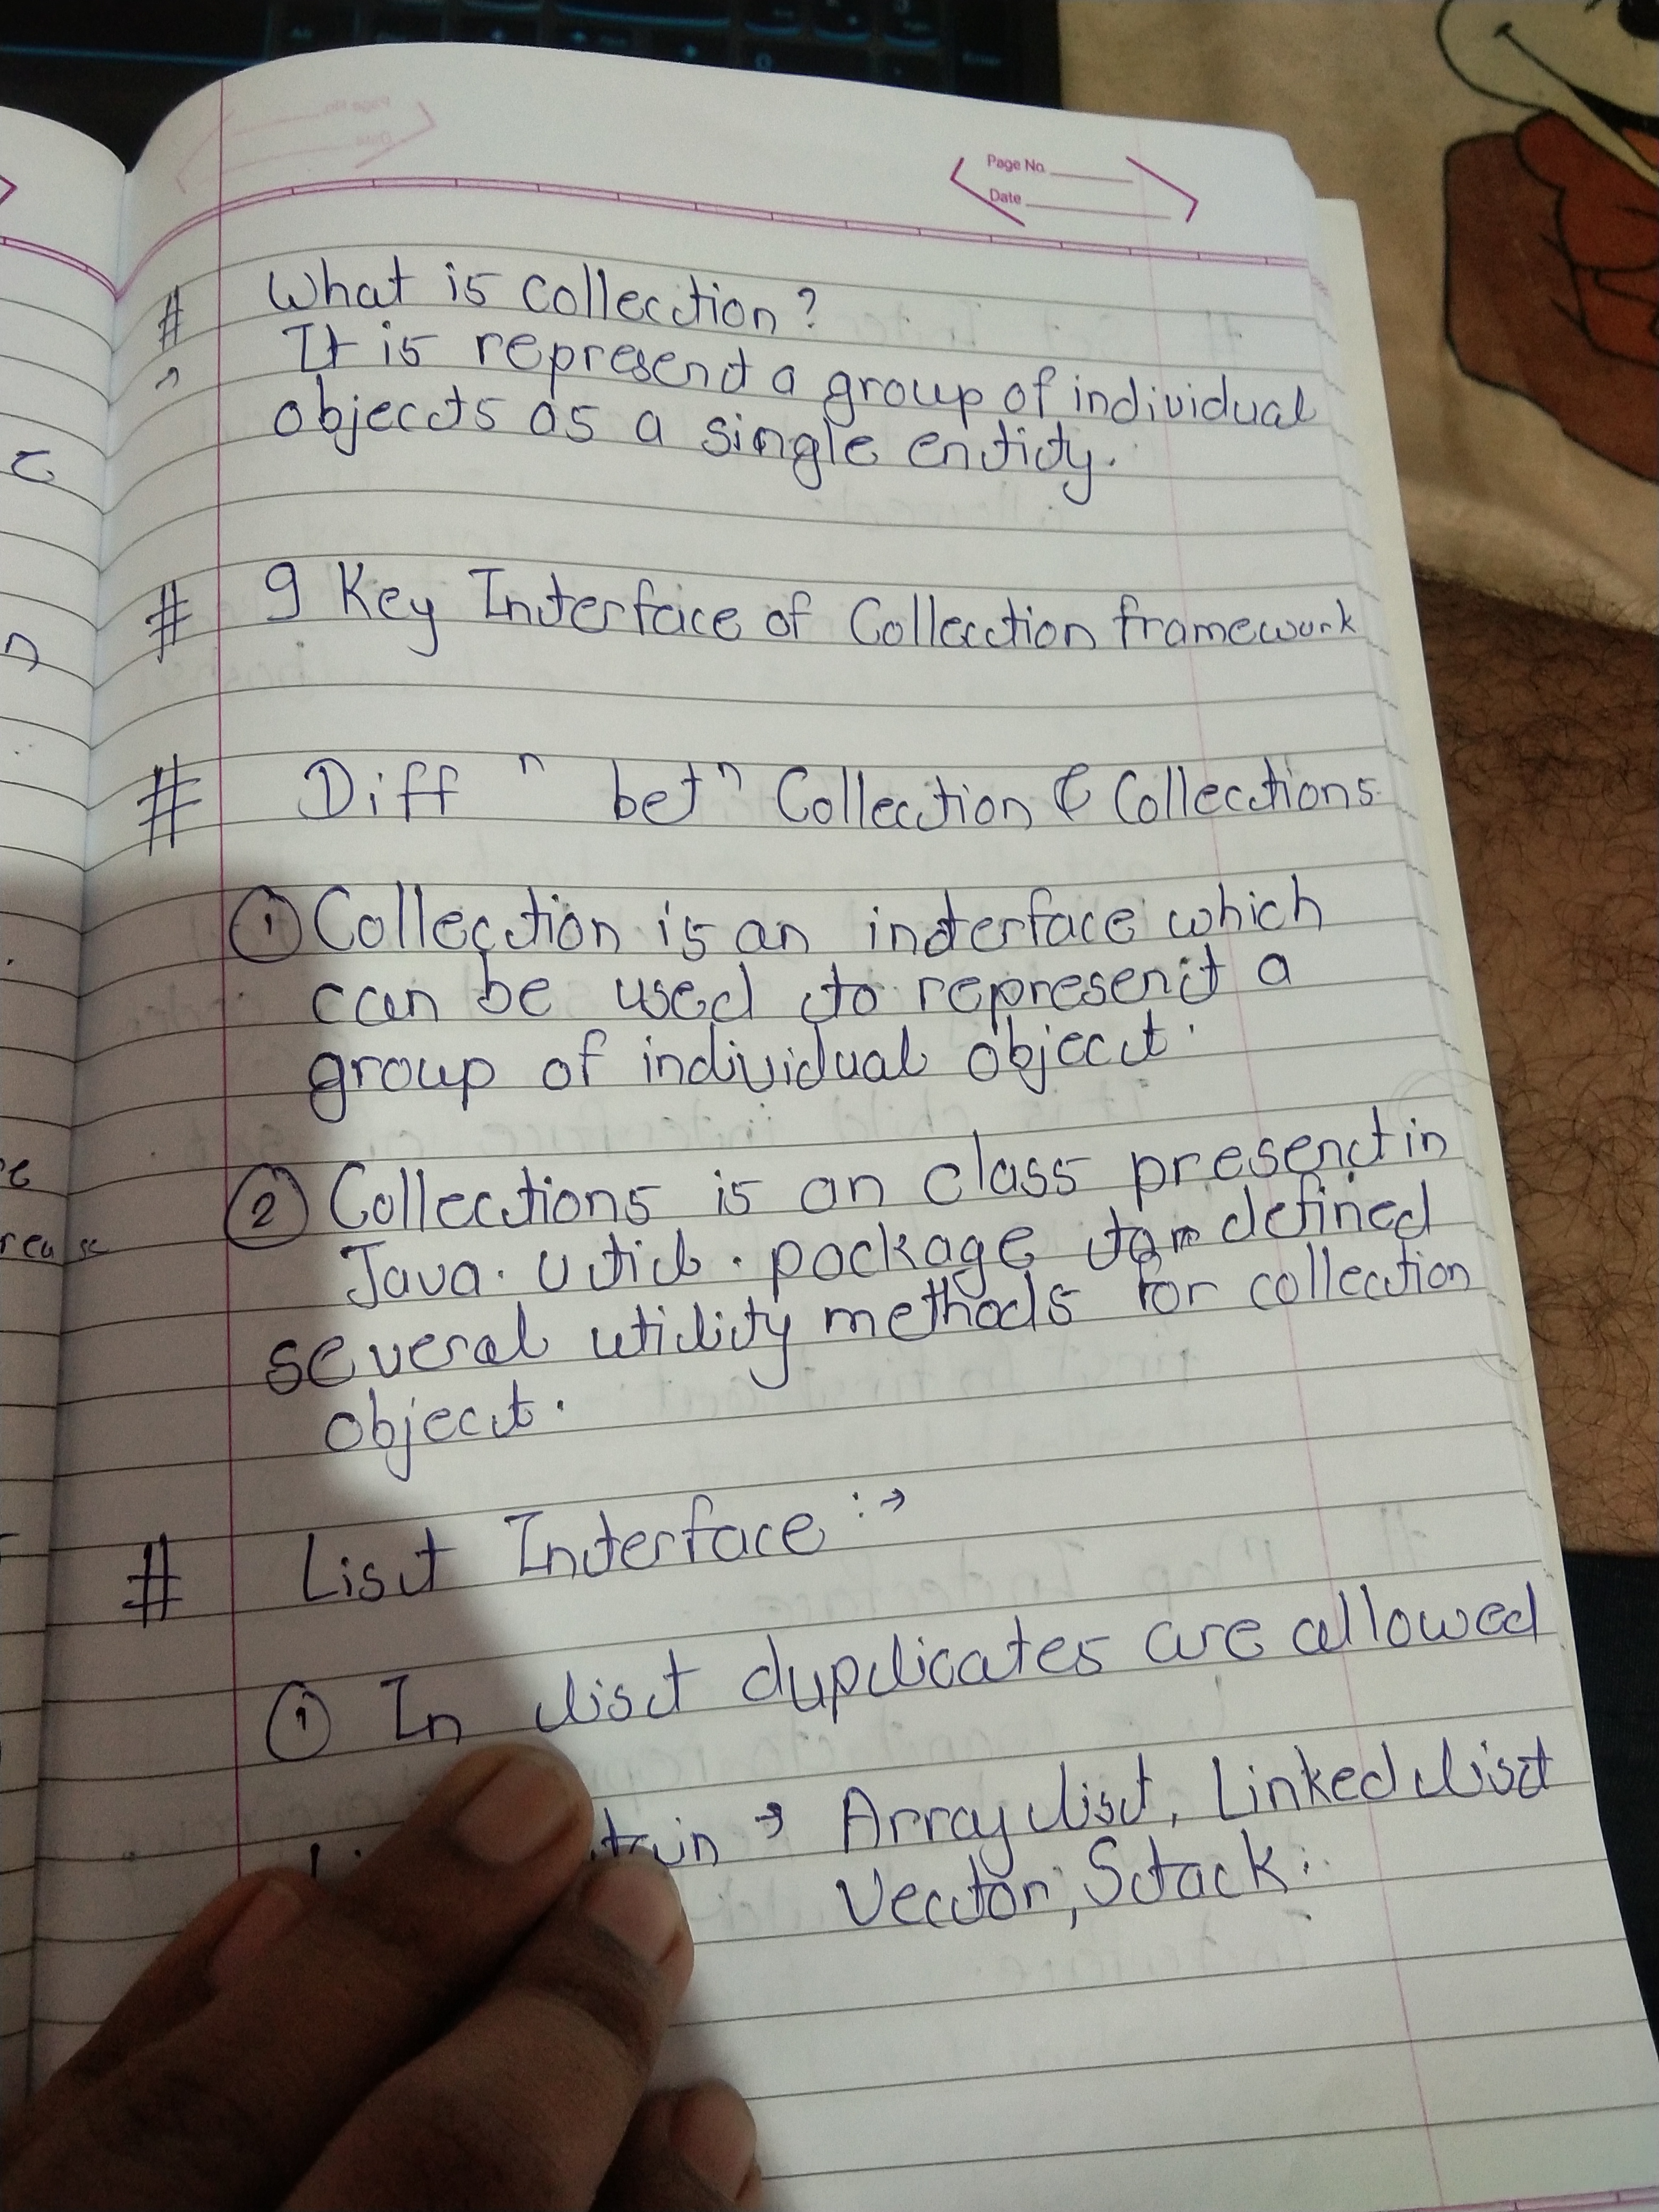 Page No.
Date
# What is collection?
→ It is represent a group of individual
objects as a single entity.
# 9 Key Interface of Collection framework
# Diff n bet n Collection & Collections
① Collection is an interface which
can be used to represent a
group of individual object.
② Collections is an class present in
Java. util. package to defined
several utility methods for collection
object.
# List Interface :→
① In list duplicates are allowed
→ Array list, Linked list
Vector, Stack.